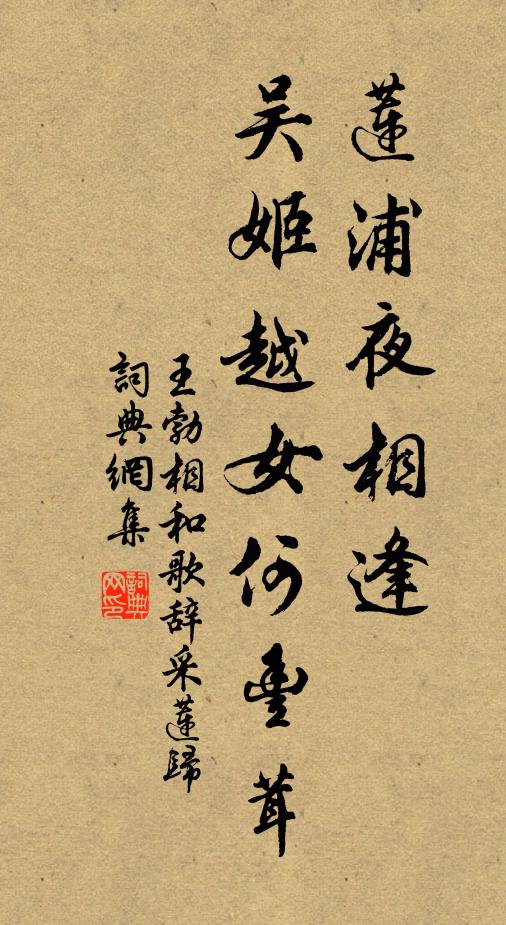 蓮浦夜相逢
吴姬越女何豐茸
王勃相和歌辞采蓮歸
詞典網集
詞典
网印